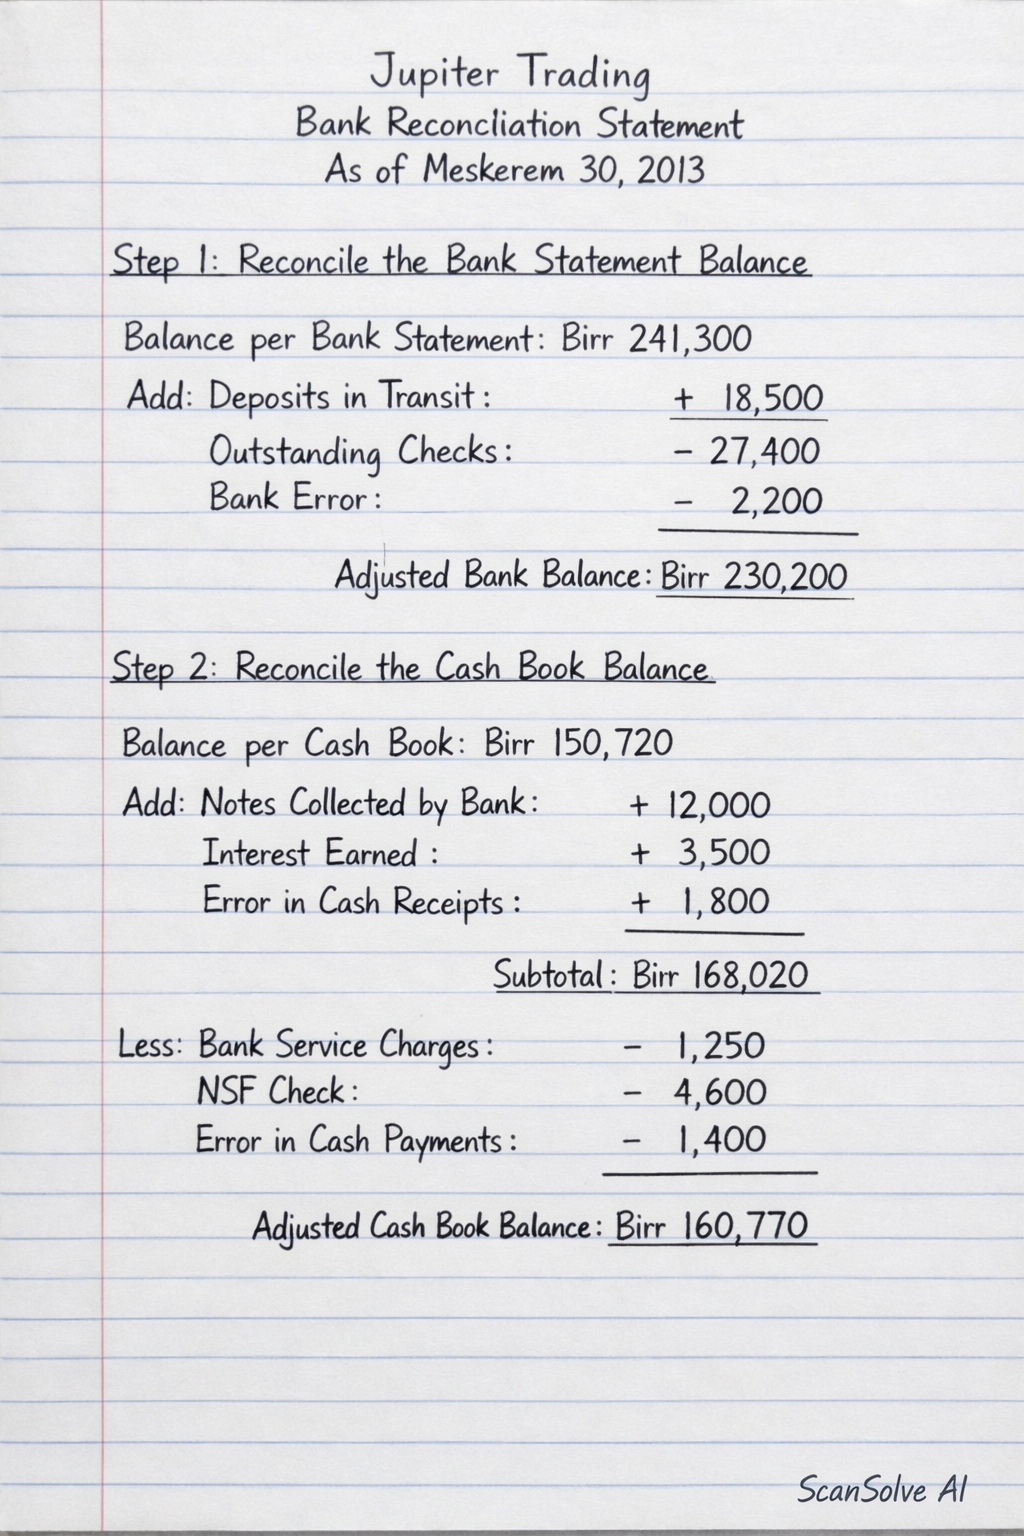 Jupiter Trading
Bank Reconcliation Statement
As of Meskerem 30, 2013
Step 1: Reconcile the Bank Statement Balance
Balance per Bank Statement: Birr 241,300
Add: Deposits in Transit: + 18,500
Outstanding Checks: - 27,400
Bank Error: - 2,200
Adjusted Bank Balance: Birr 230,200
Step 2: Reconcile the Cash Book Balance
Balance per Cash Book: Birr 150,720
Add: Notes Collected by Bank: + 12,000
Interest Earned : + 3,500
Error in Cash Receipts: + 1,800
Subtotal: Birr 168,020
Less: Bank Service Charges: - 1,250
NSF Check: - 4,600
Error in Cash Payments: - 1,400
Adjusted Cash Book Balance: Birr 160,770
ScanSolve AI